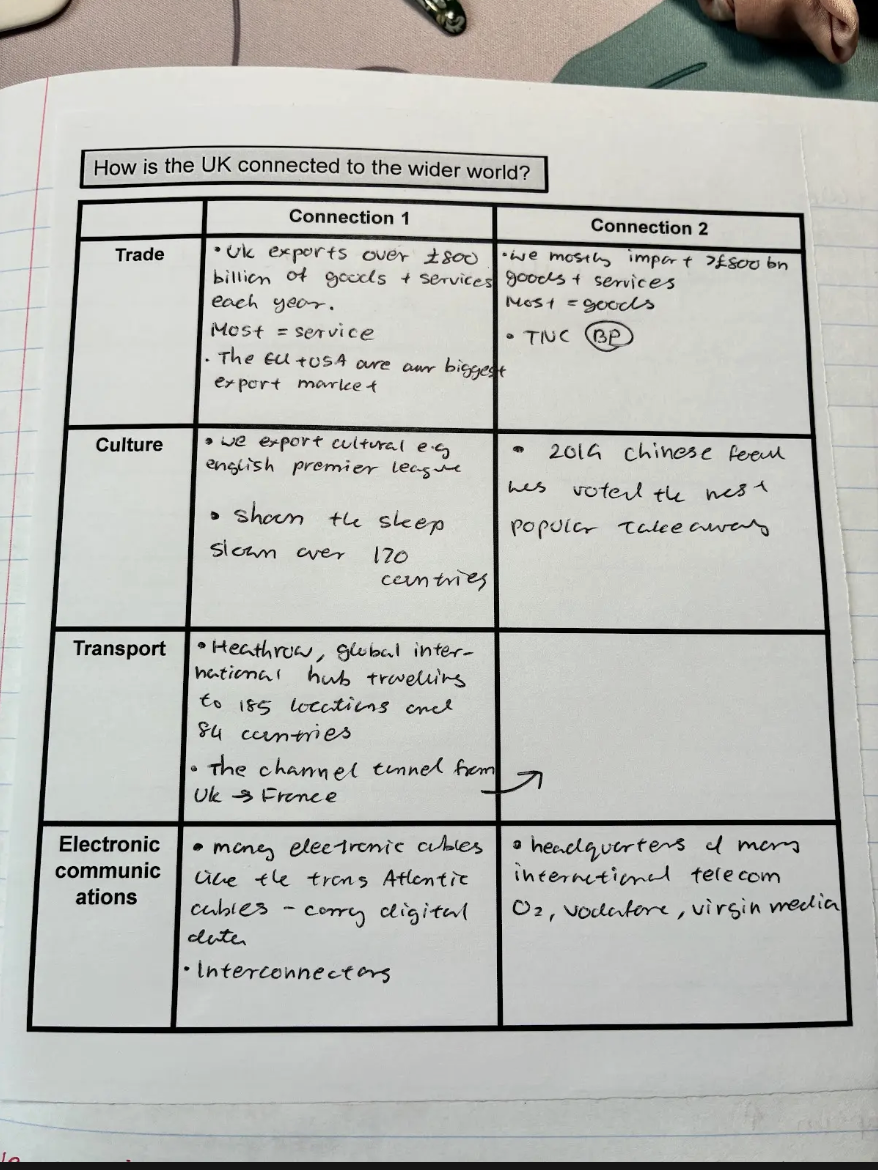 How is the UK connected to the wider world?
Connection 1
Connection 2
Trade
• UK exports over £800
billion of goods + services
each year.
Most = service
• The EU + USA are our biggest
export market
• we mostly import >£800 bn
goods + services
Most = goods
• TNC BP
Culture
• we export cultural e.g
english premier league
• shaun the sheep
shown over 170
countries
• 2019 chinese food
was voted the most
popular takeaway
Transport
• Heathrow, global inter-
national hub travelling
to 185 locations and
84 countries
• The channel tunnel from
UK → France
Electronic
communic
ations
• many electronic cables
like the trans Atlantic
cables – carry digital
data
• Interconnectors
• headquarters of many
international telecom
O2, vodafone, virgin media